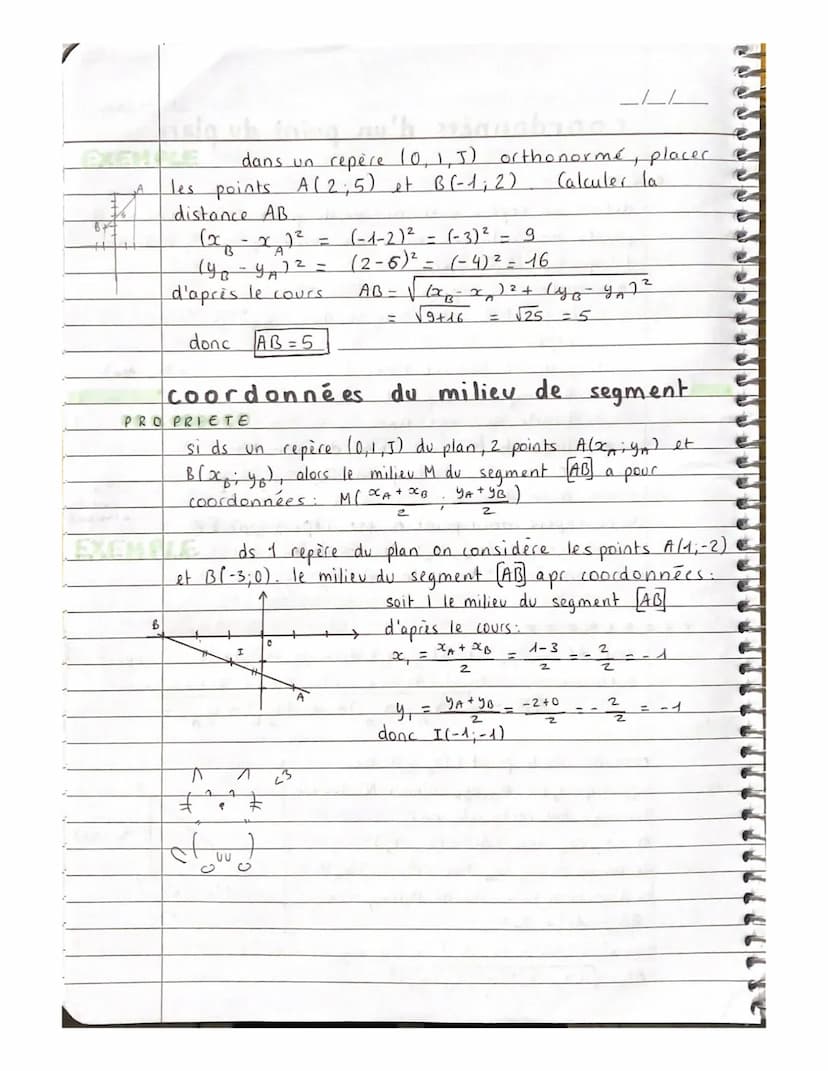 _/_/__
EXEMPLE dans un repère (O, I, J) orthonormé, placer
les points A(2;5) et B(-1;2). Calculer la
distance AB
(x_B - x_A)² = (-1-2)² = (-3)² = 9
(y_B - y_A)² = (2-6)² = (-4)² = 16
d'après le cours AB = √(x_B - x_A)² + (y_B - y_A)²
= √9+16 = √25 = 5
donc AB = 5
coordonnées du milieu de segment
PROPRIETE
si ds un repère (O,I,J) du plan, 2 points A(x_A; y_A) et
B(x_B; y_B), alors le milieu M du segment [AB] a pour
coordonnées: M( x_A + x_B / 2 ; y_A + y_B / 2 )
EXEMPLE ds 1 repère du plan on considère les points A(1;-2)
et B(-3;0). le milieu du segment [AB] apr coordonnées:
soit I le milieu du segment [AB]
d'après le cours:
x_I = x_A + x_B / 2 = 1-3 / 2 = - 2/2 = -1
y_I = y_A + y_B / 2 = -2+0 / 2 = - 2/2 = -1
donc I(-1;-1)
A
B
B
I
O
A